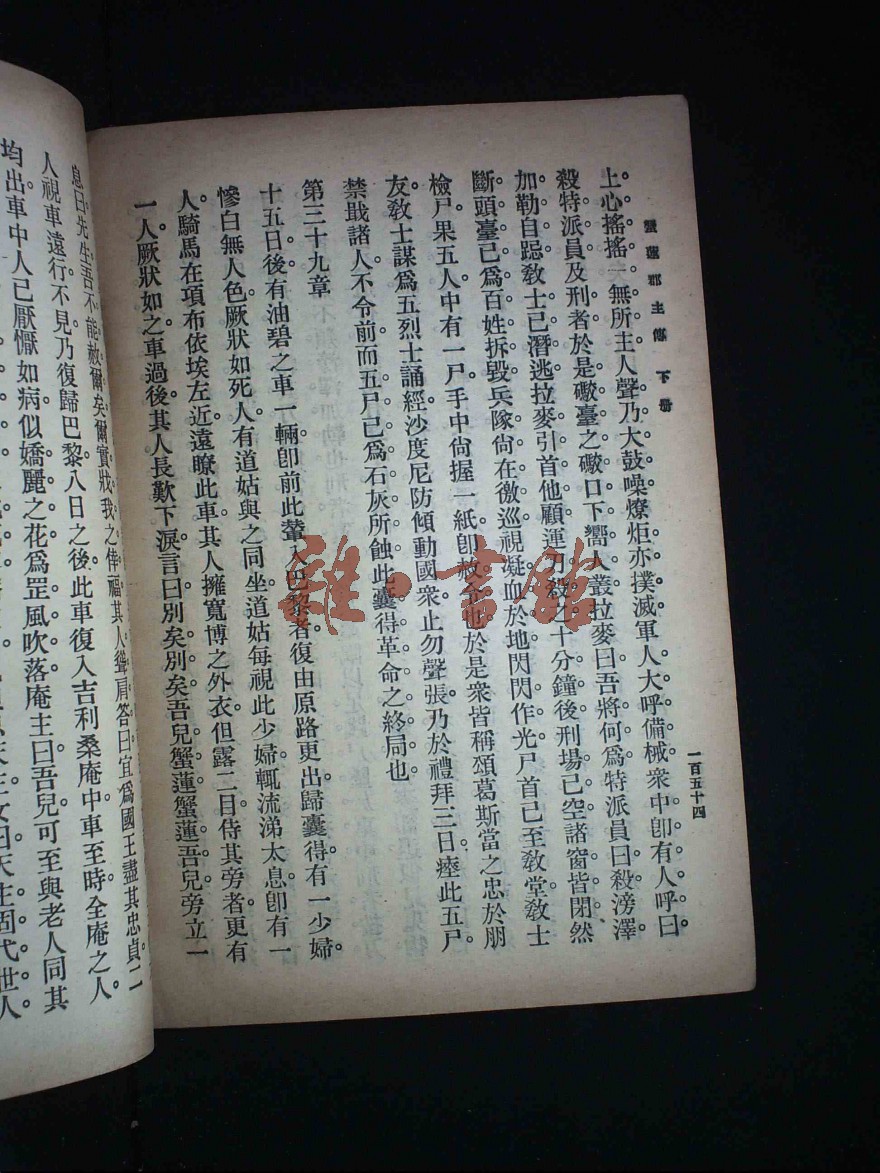 蟹蓮郡主傳 下册
一百五十四
上心搖搖一無所主人聲乃大鼓噪燎炬亦撲滅軍人大呼備械衆中卽有人呼曰。
殺特派員及刑者於是礮臺之礮口下嚮人叢拉麥曰吾將何爲特派員曰殺滂澤。
加勒自跽敎士已潛逃拉麥引首他顧運刀殺之十分鐘後刑場已空諸窗皆閉然
斷頭臺已爲百姓拆毀兵隊尙在徼巡視凝血於地閃閃作光尸首已至敎堂敎士
檢尸果五人中有一尸手中尙握一紙卽赦令也於是衆皆稱頌葛斯當之忠於朋
友敎士謀爲五烈士誦經沙度尼防傾動國衆止勿聲張乃於禮拜三日瘞此五尸
禁戢諸人不令前而五尸已爲石灰所蝕此囊得革命之終局也
第三十九章
十五日後有油碧之車一輛卽前此輦入巴黎者復由原路更出歸囊得有一少婦
慘白無人色厥狀如死人有道姑與之同坐道姑每視此少婦輒流涕太息卽有一
人騎馬在項布依埃左近遠瞭此車其人擁寬博之外衣但露二目侍其旁者更有
一人厥狀如之車過後其人長歎下淚言曰別矣別矣吾兒蟹蓮蟹蓮吾兒旁立一
息曰先生吾不能赦爾矣爾實戕我之倖福其人聳肩答曰宜爲國王盡其忠貞二
人視車遠行不見乃復歸巴黎八日之後此車復入吉利桑庵中車至時全庵之人。
均出車中人已厭懨如病似嬌麗之花爲罡風吹落庵主曰吾兒可至與老人同其
雜·書館